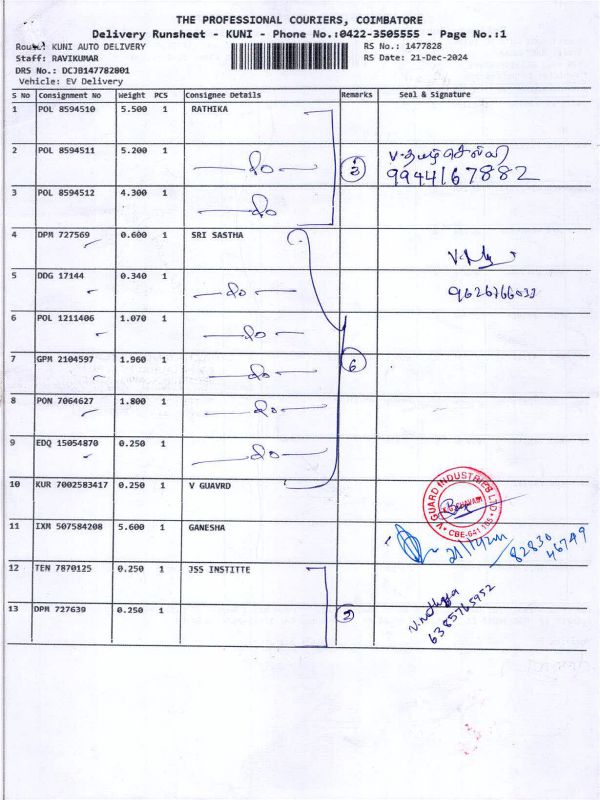 THE PROFESSIONAL COURIERS, COIMBATORE
Delivery Runsheet - KUNI - Phone No.:0422-3505555 - Page No.:1
Route: KUNI AUTO DELIVERY
RS No.: 1477828
Staff: RAVIKUMAR
RS Date: 21-Dec-2024
DRS No.: DCJB147782801
Vehicle: EV Delivery
S No Consignment No Weight PCS Consignee Details Remarks Seal & Signature
1 POL 8594510 5.500 1 RATHIKA
2 POL 8594511 5.200 1 —do— 3 V. தமிழ்செல்வி
9944167882
3 POL 8594512 4.300 1 —do—
4 DPM 727569 0.600 1 SRI SASTHA
5 DDG 17144 0.340 1 —do—
6 POL 1211406 1.070 1 —do—
7 GPM 2104597 1.960 1 —do— 6
8 PON 7064627 1.800 1 —do—
9 EDQ 15054870 0.250 1 —do—
10 KUR 7002583417 0.250 1 V GUAVRD
V GUARD INDUSTRIES LTD.
CBE-641 105
11 IXM 507584208 5.600 1 GANESHA
82830
46749
12 TEN 7870125 0.250 1 JSS INSTITTE
13 DPM 727639 0.250 1 2
6385765952